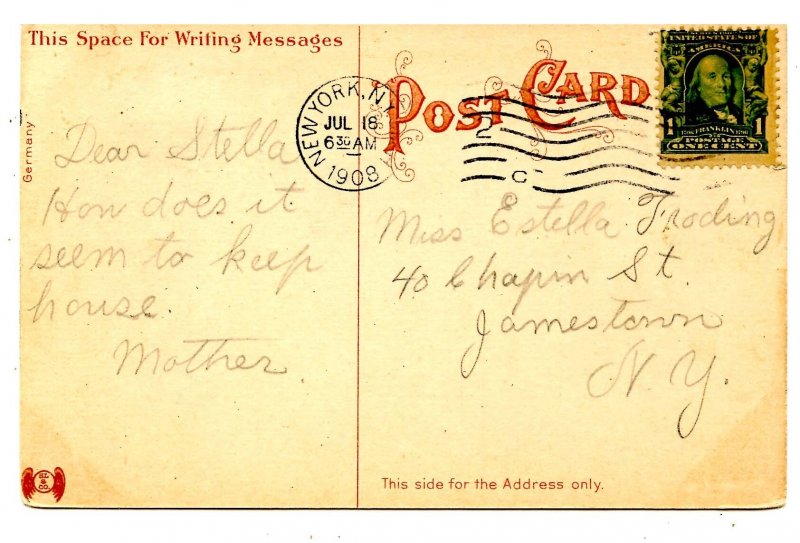 This Space For Writing Messages
Germany
Dear Stella
How does it
seem to keep
house.
Mother
POST CARD
NEW YORK, N.Y.
JUL 18
6 30 AM
1908
2
C
SERIES 1902
UNITED STATES OF
AMERICA
1 1
1706 FRANKLIN 1790
POSTAGE
ONE CENT
Miss Estella Troding
40 Chapin St.
Jamestown
N.Y.
This side for the Address only.